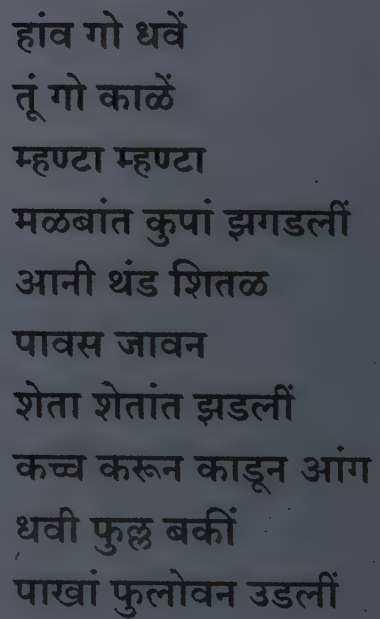 हांव गो धवें
तूं गो काळें
म्हण्टा म्हण्टा
मळबांत कुपां झगडलीं
आनी थंड शितळ
पावस जावन
शेता शेतांत झडलीं
कच्च करून काडून आंग
धवी फुल्ल बकीं
पाखां फुलोवन उडलीं